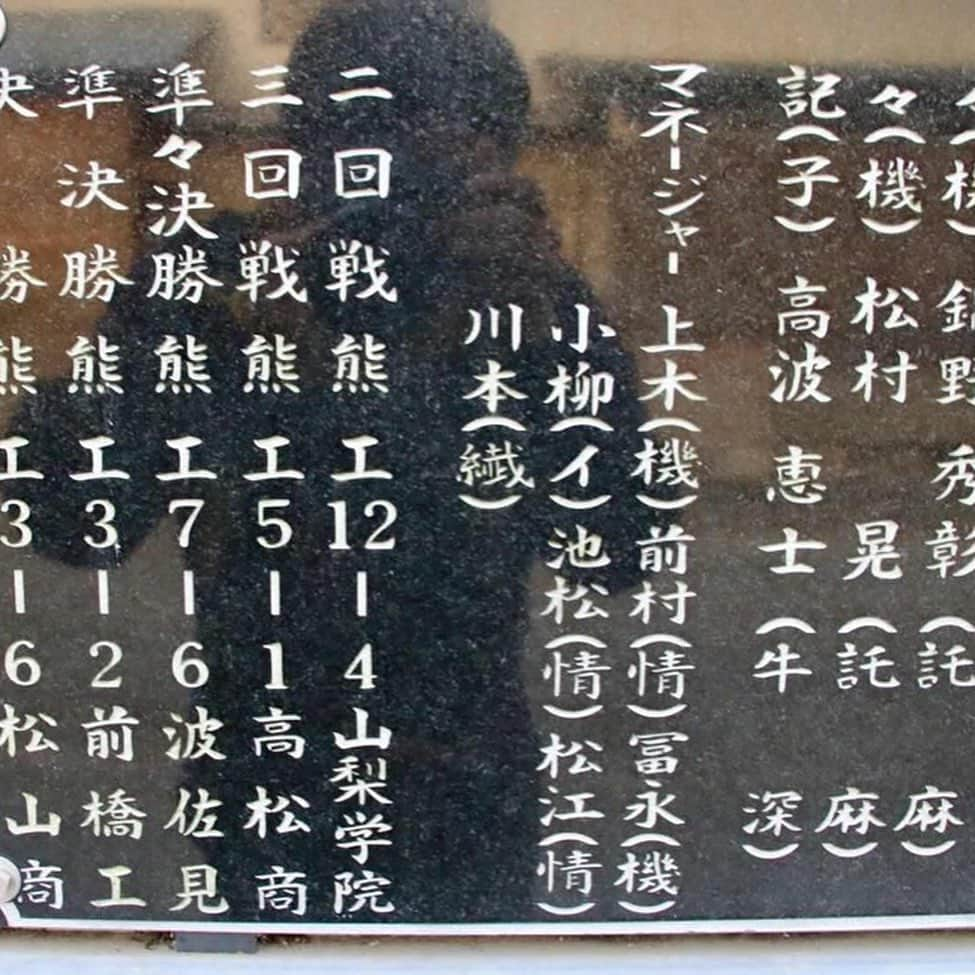 〃(機)釘野 秀彰(託麻)
々(機)松村 晃(託麻)
記(子)高波 恵士(牛深)
マネージャー 上木(機)前村(情)冨永(機)
小柳(イ)池松(情)松江(情)
川本(繊)
二回戦 熊工12-4山梨学院
三回戦 熊工5-1高松商
準々決勝 熊工7-6波佐見
準決勝 熊工3-2前橋工
決勝 熊工3-6松山商